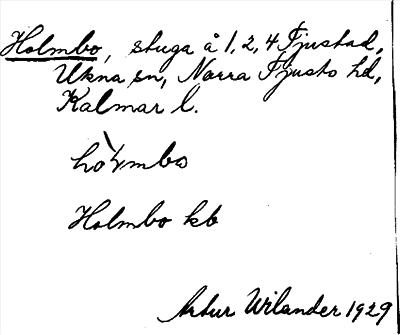 Holmbo, stuga å 1, 2, 4 Tjustad,
Ukna sn, Norra Tjusts hd,
Kalmar l.
Holmbo kb
Artur Wilander 1929